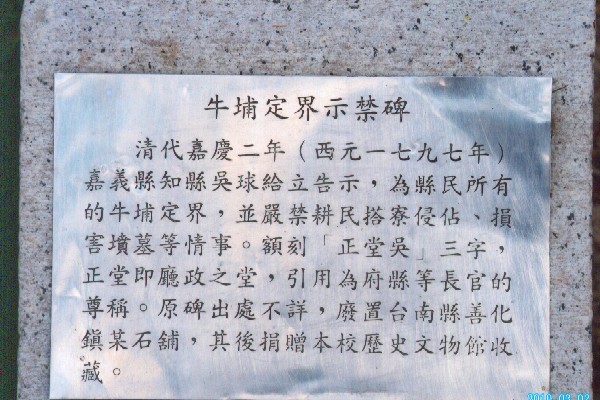 牛埔定界示禁碑
清代嘉慶二年（西元一七九七年）
嘉義縣知縣吳球給立告示，為縣民所有
的牛埔定界，並嚴禁耕民搭寮侵佔、損
害墳墓等情事。額刻「正堂吳」三字，
正堂即廳政之堂，引用為府縣等長官的
尊稱。原碑出處不詳，廢置台南縣善化
鎮某石舖，其後捐贈本校歷史文物館收
藏。